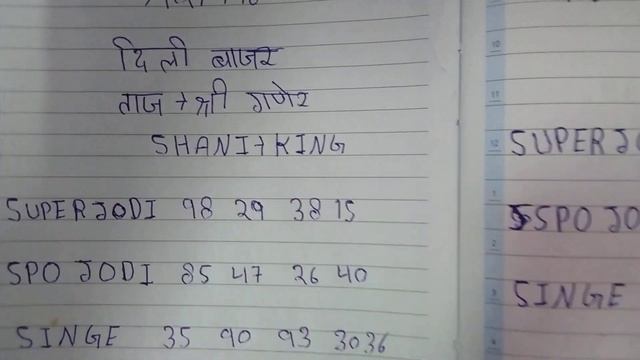 दिली बाजर
ताज + श्री गणेर
SHANI + KING
SUPER JODI 98 29 38 15
SPO JODI 85 47 26 40
SINGE 35 90 93 30 36
10
11
12 SUPER JO
1
SPO JO
2
3 SINGE